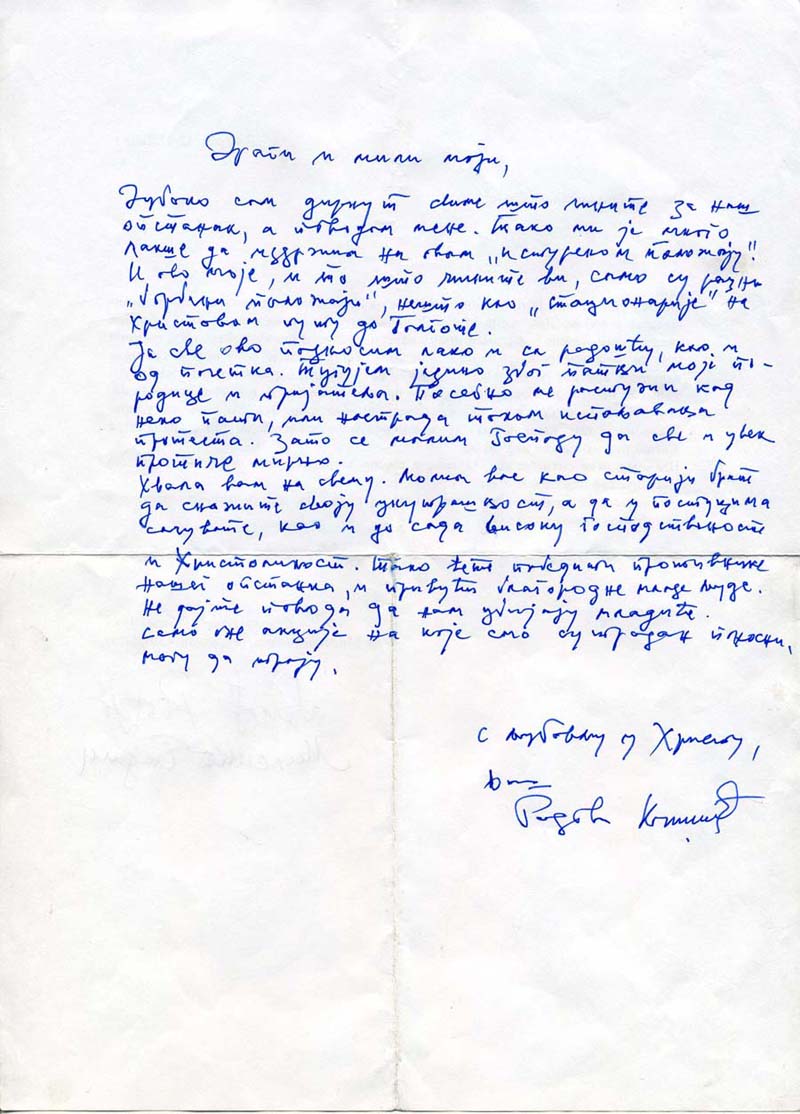 Драги и мили моји,
Дубоко сам дирнут свиме што чините за наш
опстанак, а поводом мене. Тако ми је много
лакше да издржим на овом „истуреном положају“.
И ово моје, и то што чините ви, само су разни
„борбени положаји“, нешто као „стационарије“ на
Христовом путу до Голготе.
Ја све ово подносим лако и са радошћу, као и
од почетка. Тугујем једино због патњи моје по-
родице и пријатеља. Посебно ме растужи кад
неко пати, или настрада током испољавања
протеста. Зато се молим Господу да све и увек
протиче мирно.
Хвала вам на свему. Молим вас као старији брат
да снажите своју унутрашњост, а да у поступцима
сачувате, као и до сада високу господственост
и Христоликост. Тако ћете победити противнике
нашег опстанка, и привући благородне младе људе.
Не дајте повода да нам убијају младиће.
Само оне акције на које смо сутрадан поносни,
могу да трају.
С љубављу у Христу,
Ваш